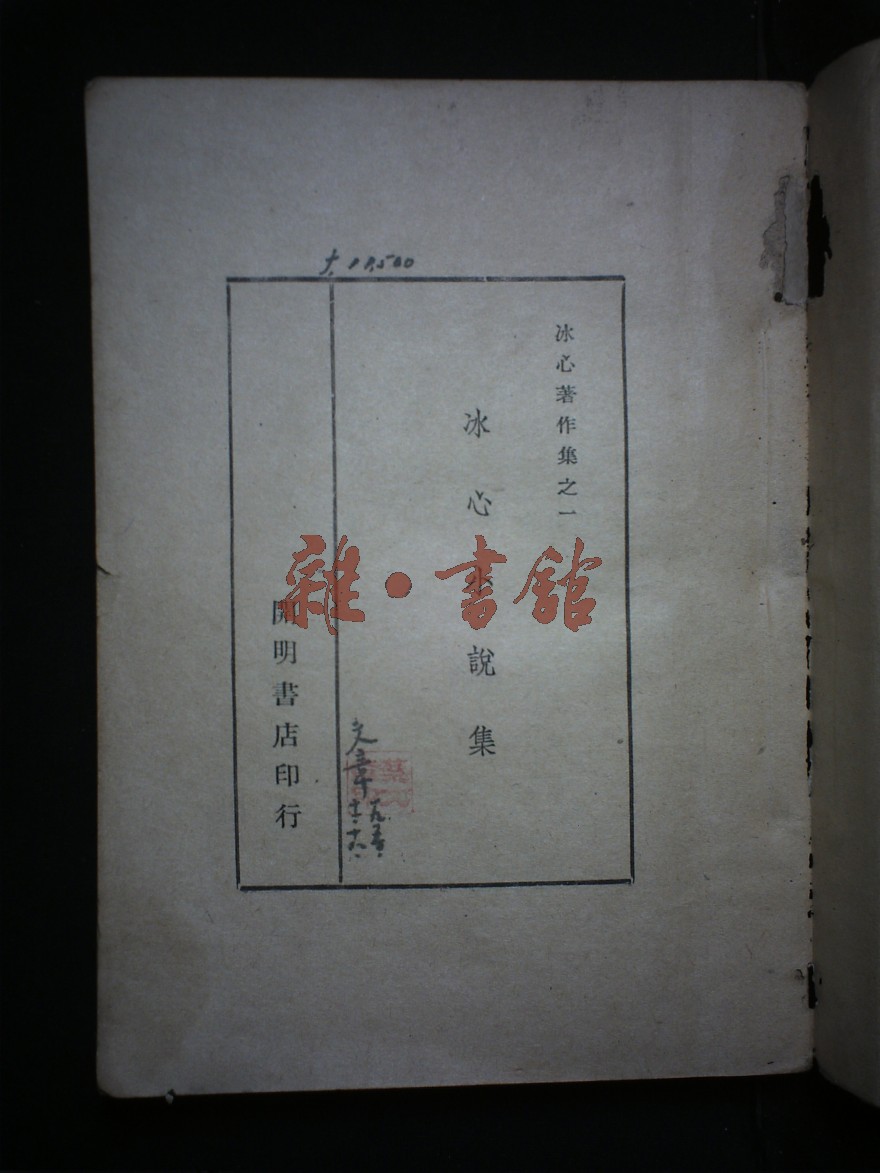 冰心著作集之一
冰心小說集
開明書店印行
雜·書館
文章